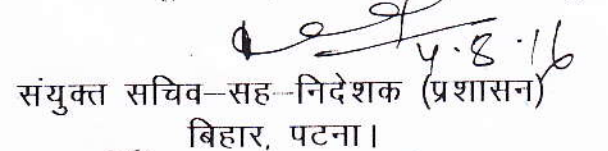 4.8.16
संयुक्त सचिव–सह–निदेशक (प्रशासन)
बिहार, पटना।